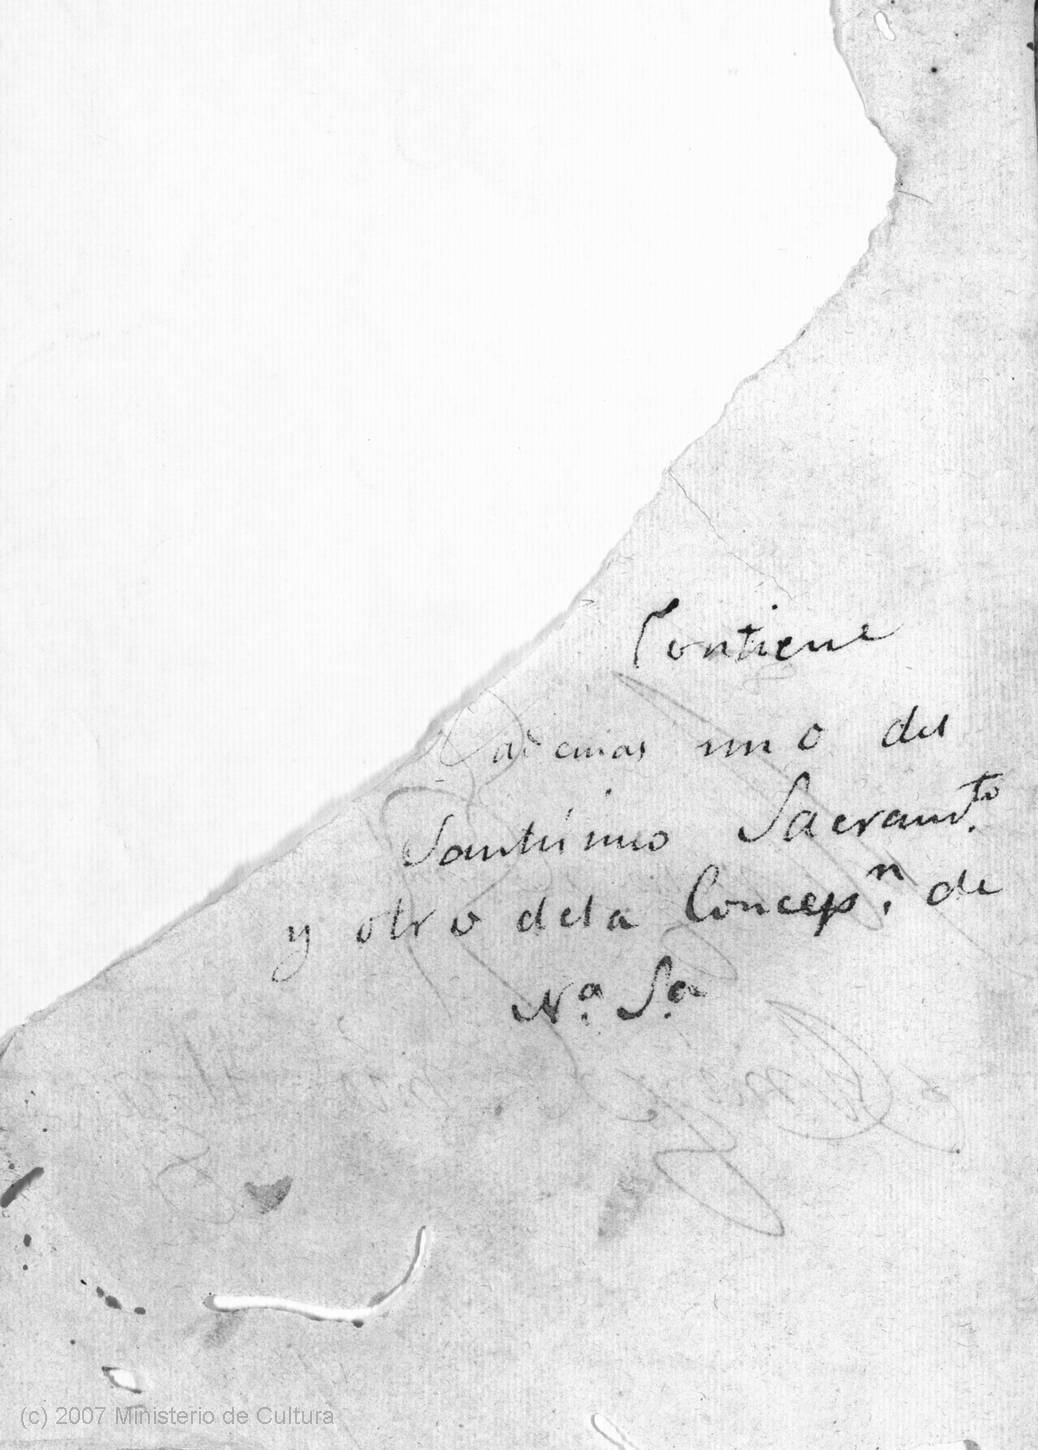 Contiene
ademas uno del
Santisimo Sacramto.
y otro dela Concepn. de
Na. Sa
(c) 2007 Ministerio de Cultura